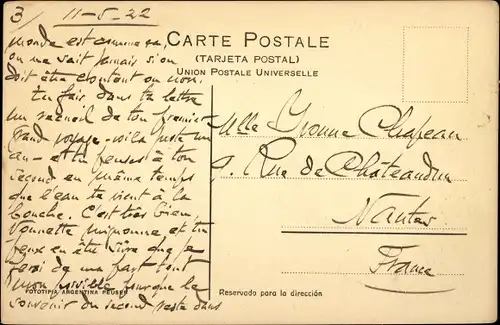 3/ 11-5-22
monde est comme ça,
on ne sait jamais si on
doit être content ou non.
tu fais dans ta lettre
un recueil de ton premier
Grand voyage - voilà juste un
an - et tu penses à ton
second en même temps
que l'eau te vient à la
bouche. C'est très bien,
Vonnette mignonne et tu
peux en être sûre que je
ferai de ma part tout
mon possible pour que le
souvenir du second reste dans
CARTE POSTALE
(TARJETA POSTAL)
UNION POSTALE UNIVERSELLE
Mlle Yvonne Chapeau
9. Rue de Châteaudun
Nantes
France
FOTOTIPIA ARGENTINA PEUSER
Reservado para la dirección